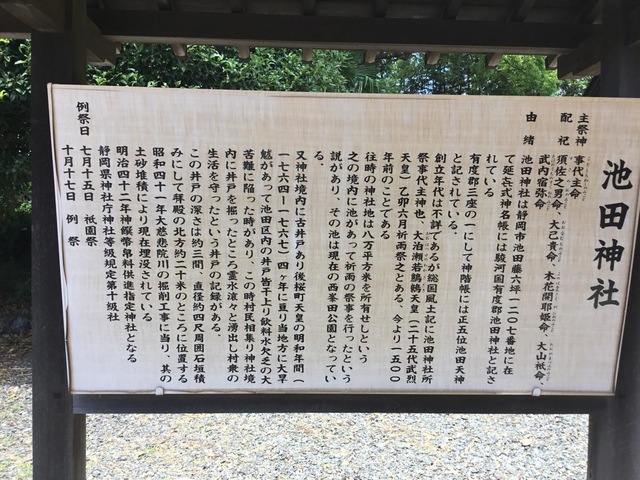 池田神社
主祭神 事代主命
配祀 須佐之男命、大己貴命、木花開耶姫命、大山祇命、
武内宿弥命
由緒 池田神社は静岡市池田藤六坪一二〇七番地に在
て延㐂式神名帳には駿河国有度郡池田神社と記さ
れている
有度郡三座の一にして神階帳には正五位池田天神
と記されている。
創立年代は不詳であるが総国風土記に池田神社所
祭事代主神也、大泊瀬若鷦鷯天皇(二十五代武烈
天皇)乙卯六月祈雨祭之とある、今より一五〇〇
年前のことである
往時の神社地は八万平方米を所有せしという
之の境内に池があって祈雨の祭事を行ったという
説があり、その池は現在の西峯田公園となってい
る。
又神社境内に古井戸あり後桜町天皇の明和年間(
一七六四ー一七六七)四ヶ年に亘り当地方に大旱
魃があって池田区内の井戸皆干上り飲料水欠乏の大
苦難に陥った時があり、この時村民相集り神社境
内に井戸を掘ったところ霊水滾々と湧出し村衆の
生活を守ったという井戸の記録がある。
この井戸の深さは約三間、直径約四尺周囲石垣積
みにして拝殿の北方約二十米のところに位置する
昭和四十一年大慈悲院川の掘削工事に当り、其の
土砂堆積により現在埋没されている
明治四十二年神饌幣帛料供進指定神社となる
静岡県神社庁神社等級規定第十級社
例祭日 七月十五日 祇園祭
十月十七日 例祭